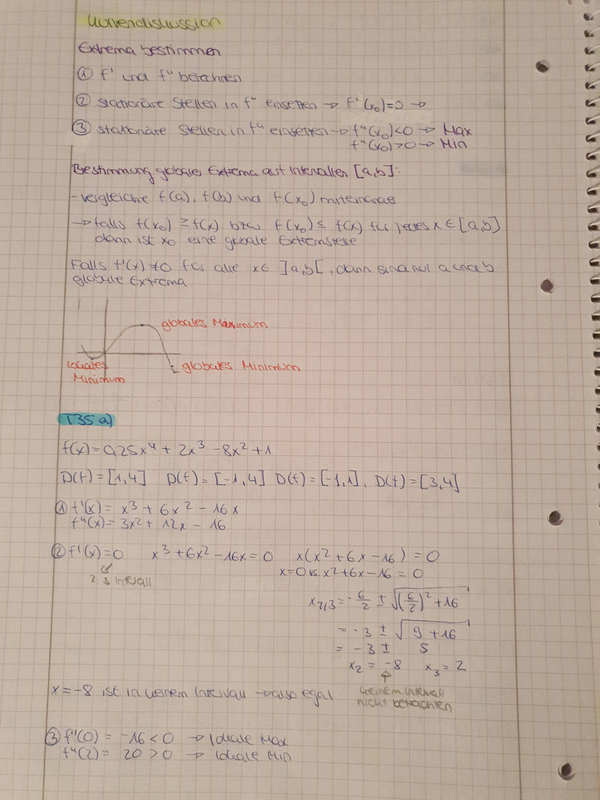 Kurvendiskussion
Extrema bestimmen
① f' und f'' berechnen
② stationäre Stellen in f'' einsetzen → f'(x₀)=0 →
③ stationäre Stellen in f'' einsetzen → f''(x₀)<0 → Max
f''(x₀)>0 → Min
Bestimmung globaler Extrema auf Intervallen [a,b]:
- vergleiche f(a), f(b) und f(x₀) miteinander
→ falls f(x₀) ≥ f(x) bzw. f(x₀) ≤ f(x) für jedes x ∈ [a,b]
dann ist x₀ eine globale Extremstelle
Falls f'(x) ≠ 0 für alle x ∈ ]a,b[, dann sind nur a und b
globale Extrema
globales Maximum
lokales
Minimum
globales Minimum
T35 a)
f(x) = 0,25x⁴ + 2x³ - 8x² + 1
D(f) = [1,4] D(f) = [-1,4] D(f) = [-1,1], D(f) = [3,4]
① f'(x) = x³ + 6x² - 16x
f''(x) = 3x² + 12x - 16
② f'(x) = 0 x³ + 6x² - 16x = 0 x(x² + 6x - 16) = 0
x = 0 x² + 6x - 16 = 0
x₂,₃ = -6/2 ± √((6/2)² + 16)
= -3 ± √(9 + 16)
= -3 ± 5
x₂ = -8 x₃ = 2
x = -8 ist in keinem Intervall → also egal
keinem Intervall
nicht betrachten
③ f''(0) = -16 < 0 → lokale Max
f''(2) = 20 > 0 → lokale Min